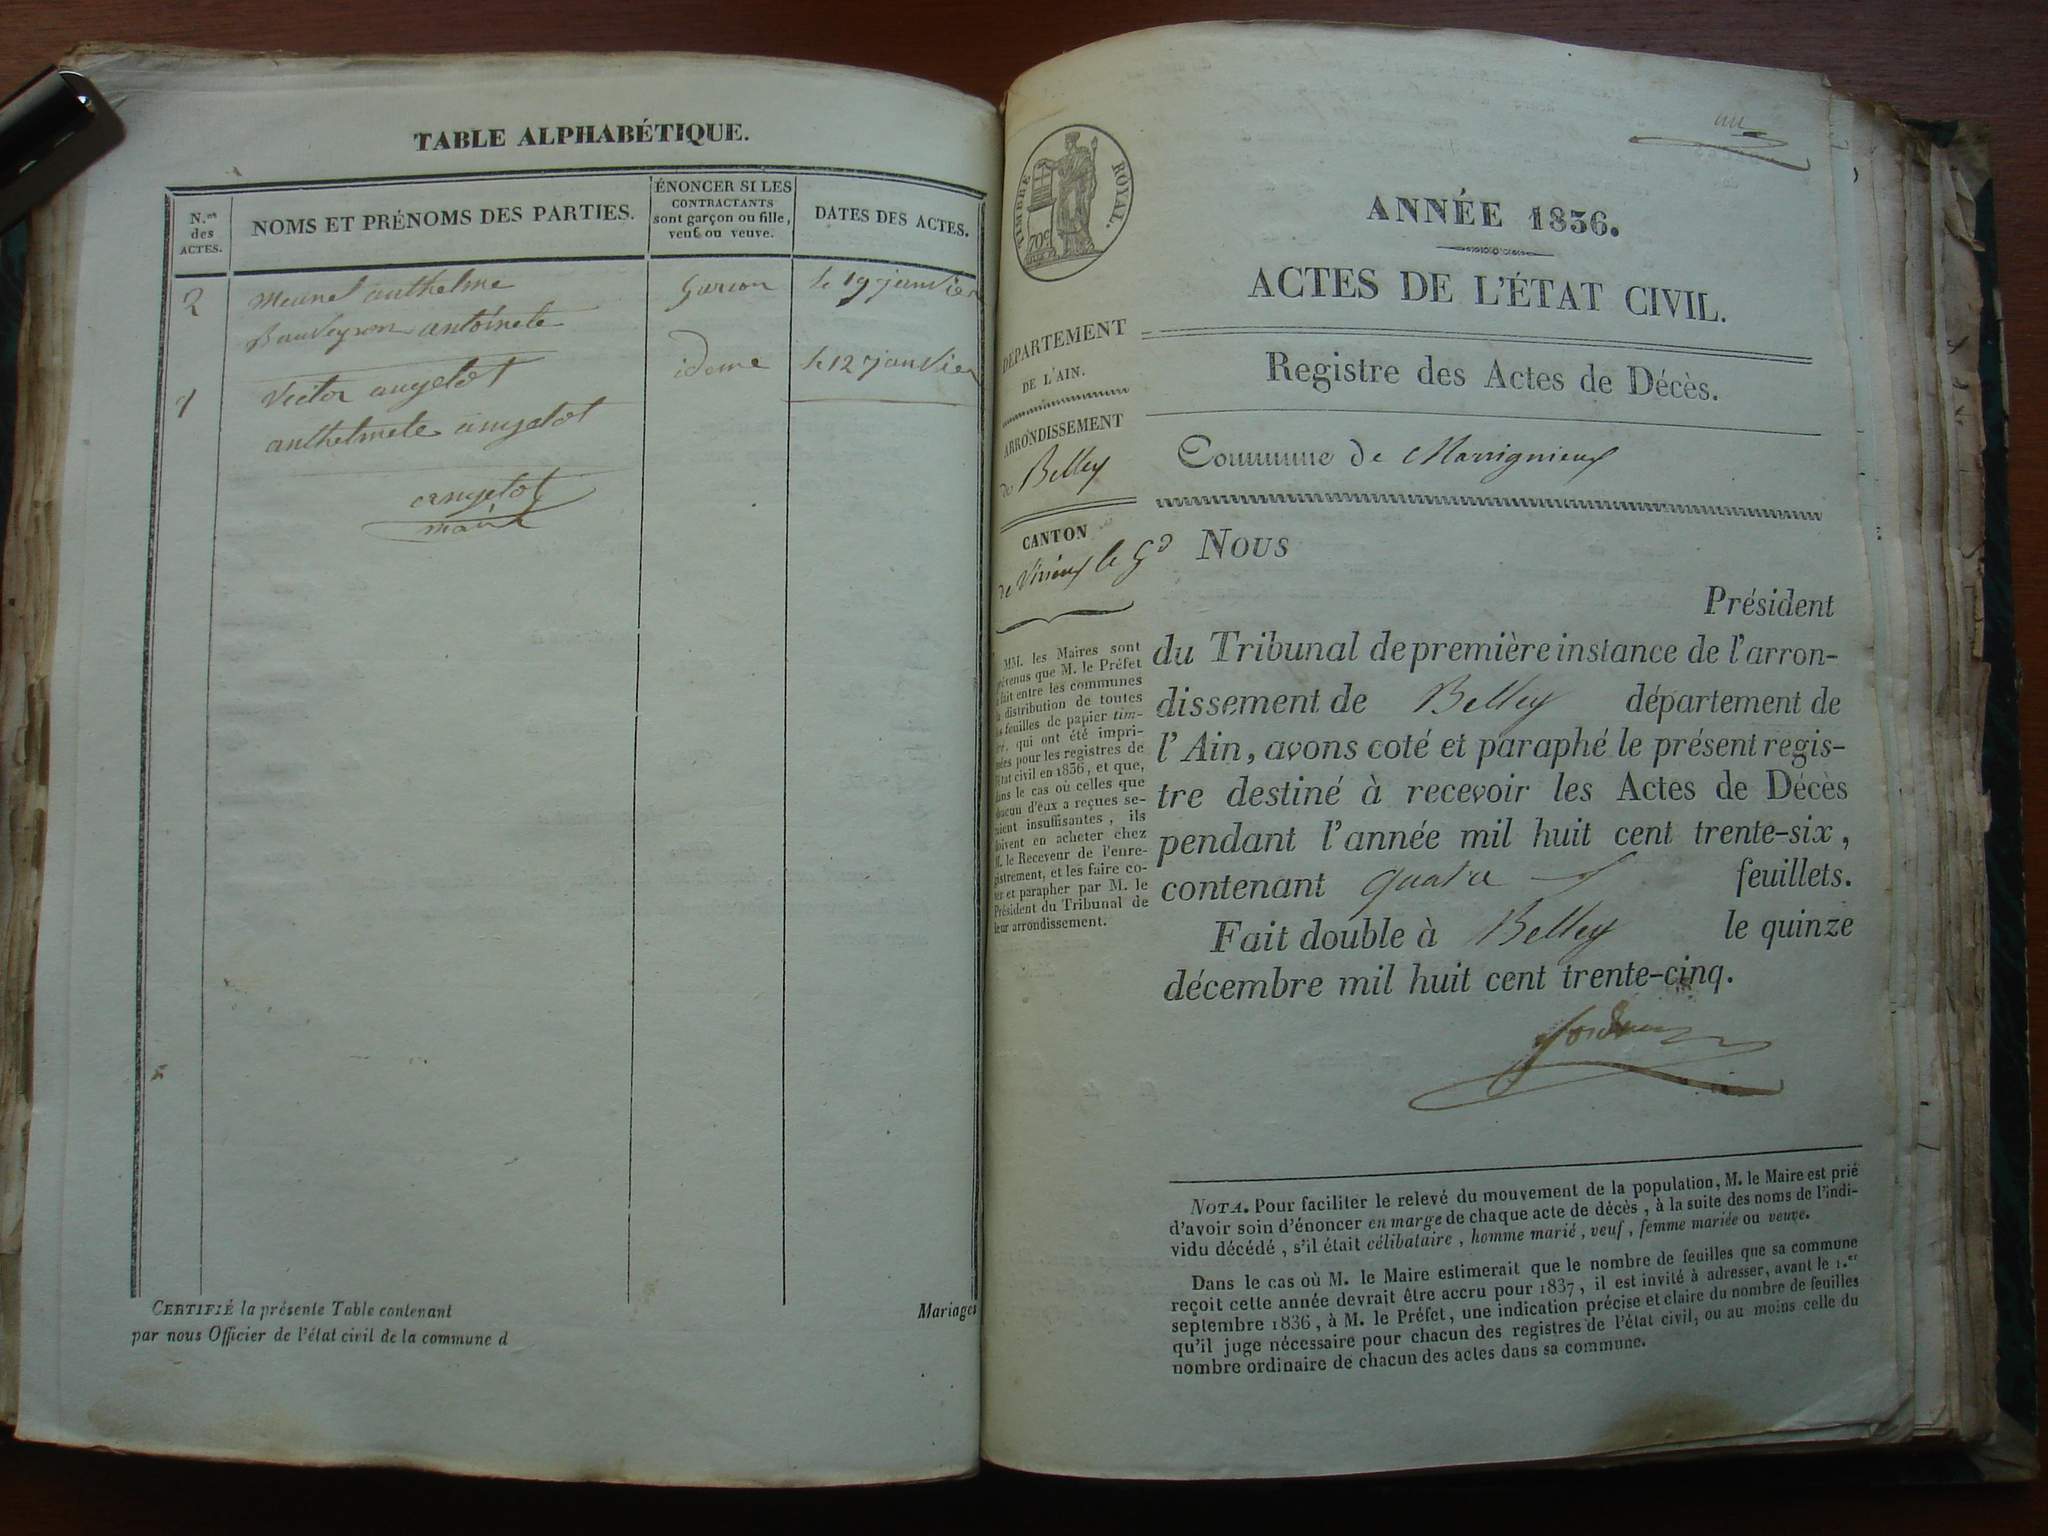 TABLE ALPHABÉTIQUE.
N.os des ACTES.
NOMS ET PRÉNOMS DES PARTIES.
ÉNONCER SI LES CONTRACTANTS sont garçon ou fille, veuf ou veuve.
DATES DES ACTES.
2 Meunet anthelme Garcon le 19 janvier
antoinete
1 Victor angelot idome le 12 janvier
anthelmete angelot
angelot
maire
CERTIFIÉ la présente Table contenant Mariages
par nous Officier de l'état civil de la commune d
un
TIMBRE ROYAL.
70c
ANNÉE 1836.
ACTES DE L'ÉTAT CIVIL.
DEPARTEMENT
DE L'AIN.
ARRONDISSEMENT
de Belley
CANTON
de Virieux le Gd
MM. les Maires sont
prévenus que M. le Préfet
a fait entre les communes
la distribution de toutes
les feuilles de papier tim-
bré, qui ont été impri-
mées pour les registres de
l'état civil en 1836, et que,
dans le cas où celles que
chacun d'eux a reçues se-
raient insuffisantes, ils
doivent en acheter chez
M. le Receveur de l'enre-
gistrement, et les faire co-
ter et parapher par M. le
Président du Tribunal de
leur arrondissement.
Registre des Actes de Décès.
Commune de Marignieux
Nous
Président
du Tribunal de première instance de l'arron-
dissement de Belley département de
l'Ain, avons coté et paraphé le présent regis-
tre destiné à recevoir les Actes de Décès
pendant l'année mil huit cent trente-six,
contenant quatre feuillets.
Fait double à Belley le quinze
décembre mil huit cent trente-cinq.
NOTA. Pour faciliter le relevé du mouvement de la population, M. le Maire est prié
d'avoir soin d'énoncer en marge de chaque acte de décès, à la suite des noms de l'indi-
vidu décédé, s'il était célibataire, homme marié, veuf, femme mariée ou veuve.
Dans le cas où M. le Maire estimerait que le nombre de feuilles que sa commune
reçoit cette année devrait être accru pour 1837, il est invité à adresser, avant le 1.er
septembre 1836, à M. le Préfet, une indication précise et claire du nombre de feuilles
qu'il juge nécessaire pour chacun des registres de l'état civil, ou au moins celle du
nombre ordinaire de chacun des actes dans sa commune.